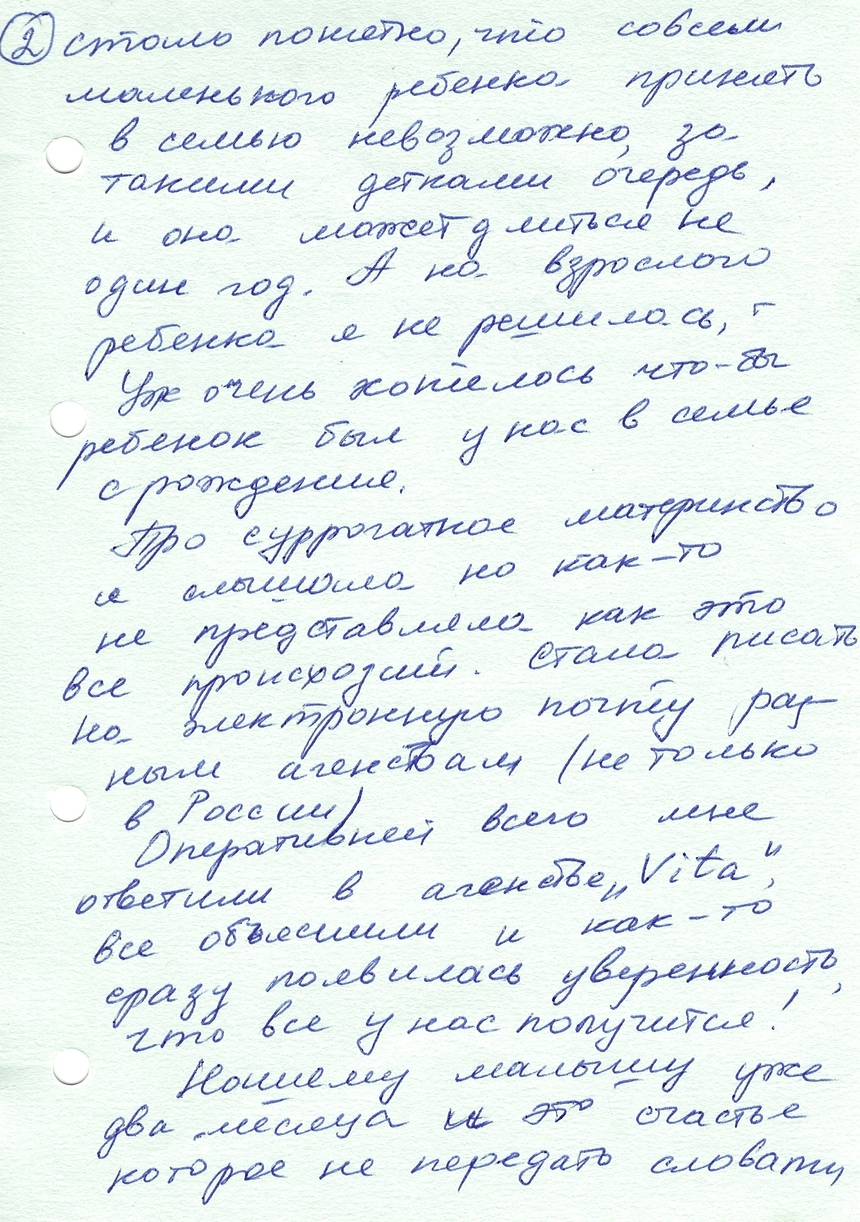 ② стало понятно, что совсем
маленького ребенка принять
в семью невозможно, за
такими детками очередь,
и она может длиться не
один год. А на взрослого
ребенка я не решилась,
Уж очень хотелось что-бы
ребенок был у нас в семье
с рождения.
Про суррогатное материнство
я слышала но как-то
не представляла как это
все происходит. Стала писать
на электронную почту раз-
ным агенствам (не только
в России)
Оперативней всего мне
ответили в агенстве „Vita",
все объяснили и как-то
сразу появилась уверенность,
что все у нас получится!
Нашему малышу уже
два месяца и это счастье
которое не передать словами,